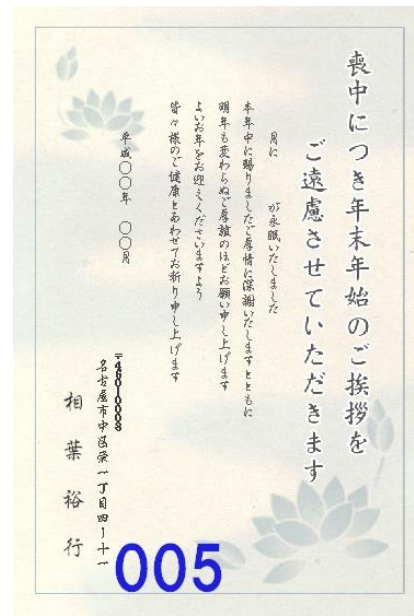 喪中につき年末年始のご挨拶を
ご遠慮させていただきます
月に　　が永眠いたしました
本年中に賜りましたご厚情に深謝いたしますとともに
明年も変わらぬご厚誼のほどお願い申し上げます
よいお年をお迎えくださいますよう
皆々様のご健康とあわせてお祈り申し上げます
平成〇〇年　〇〇月
〒460-0008
名古屋市中区栄一丁目四ー十一
相葉裕行
005